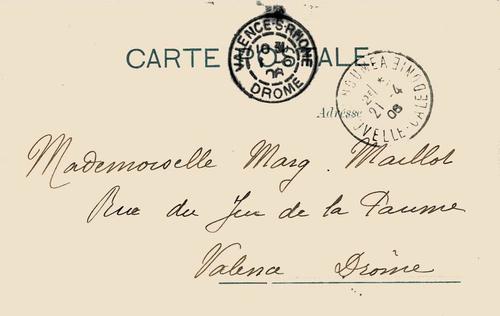 CARTE POSTALE
VALENCE-S-RHONE
DROME
06
NOUMEA
NOUVELLE-CALEDONIE
21 -4
06
Adresse
Mademoiselle Marg. Maillot
Rue du Jeu de la Paume
Valence Drôme